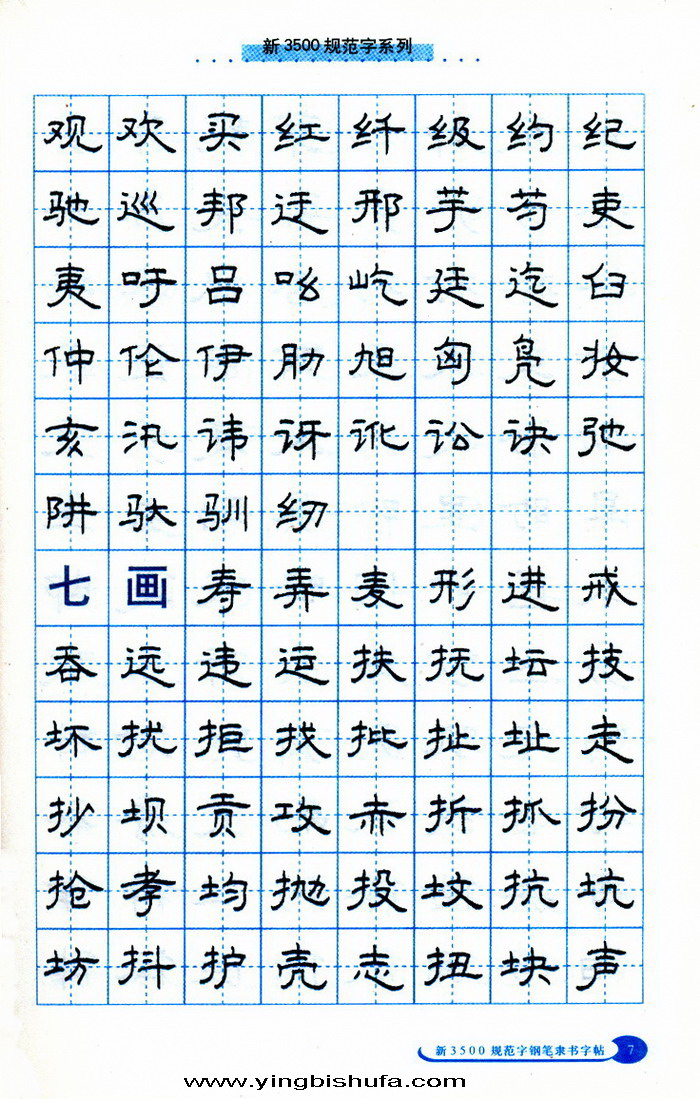 新3500规范字系列
观欢买红纤级约纪
驰巡邦迂邢芋芍吏
夷吁吕吆屹廷迄臼
仲伦伊肋旭匈凫妆
亥汛讳讶讹讼诀弛
阱驮驯纫
七画寿弄麦形进戒
吞远违运扶抚坛技
坏扰拒找批扯址走
抄坝贡攻赤折抓扮
抢孝均抛投坟抗坑
坊抖护壳志扭块声
新3500规范字钢笔隶书字帖 7
www.yingbishufa.com